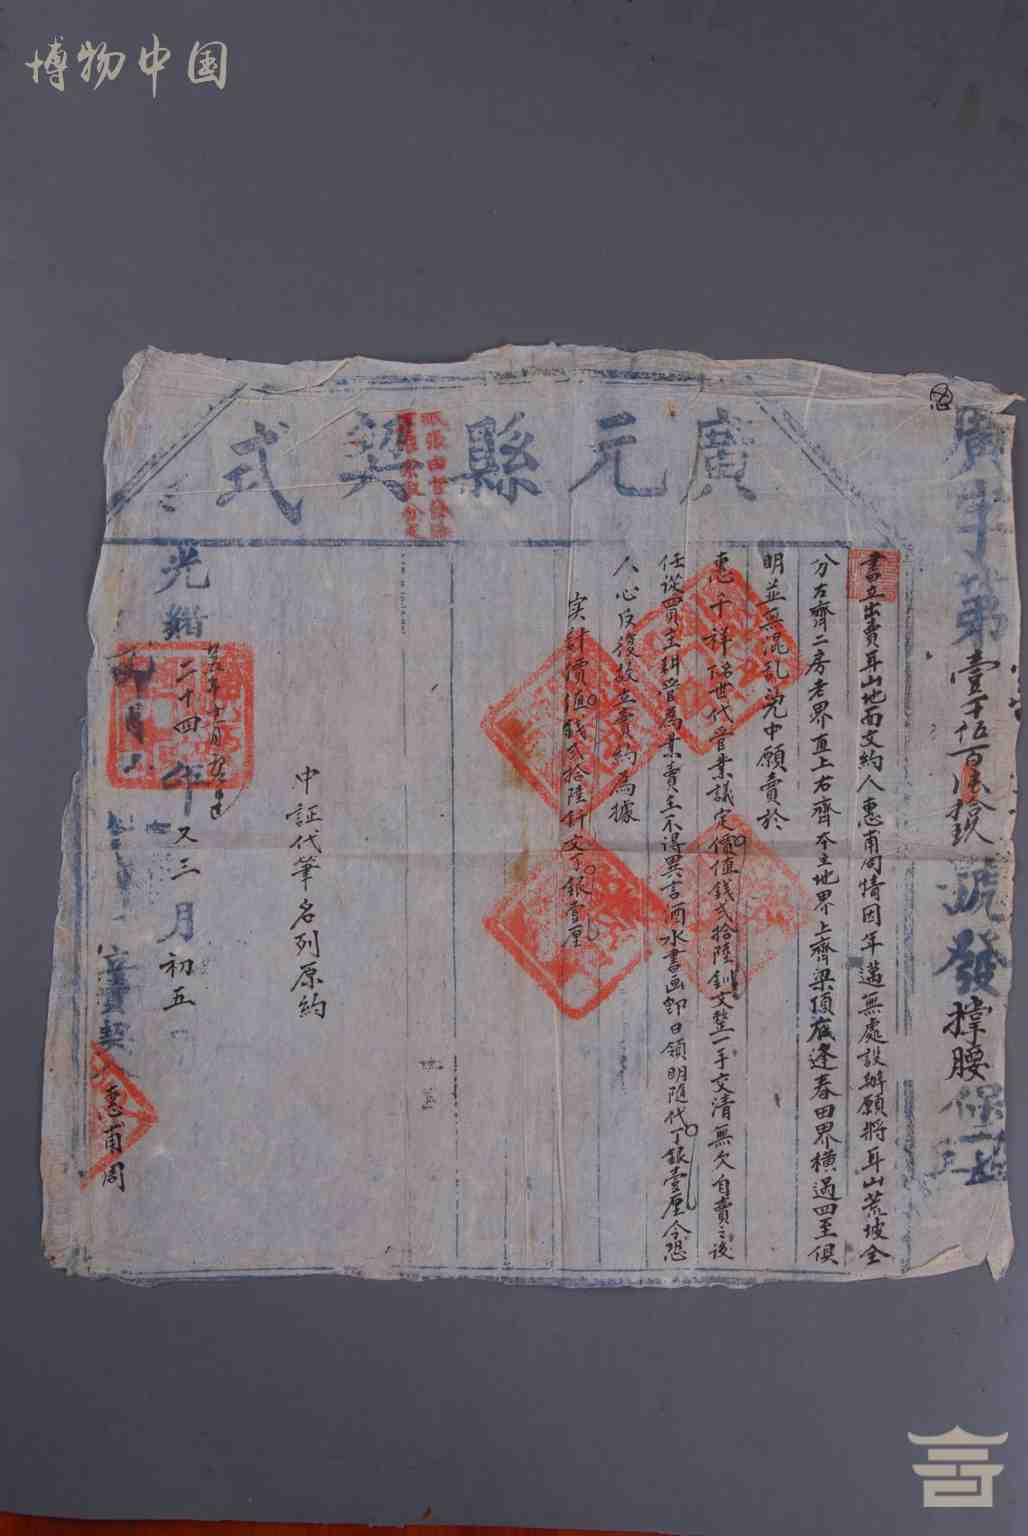 博物中国
廣元縣契式
廣字第壹千伍百陸拾玖號發撑腰保
書立出賣耳山地面文約人惠甫周情因年邁無處設辦願將耳山荒坡全
分右齊二房老界直上右齊本主地界上齊梁頂底逢春田界橫過四至俱
明並無混乱凭中願賣於
惠千祥名世代管業議定價值錢弍拾陸釧文整一手交清無欠自賣之後
任從買主耕管為業賣主不得異言酒水書画卽日領明隨代丁銀壹厘今恐
人心反復故立賣約為據
实計價值錢弍拾陸仟文丁銀壹厘
中証代筆名列原約
光緒二十四年又三月初五
立賣契
惠甫周